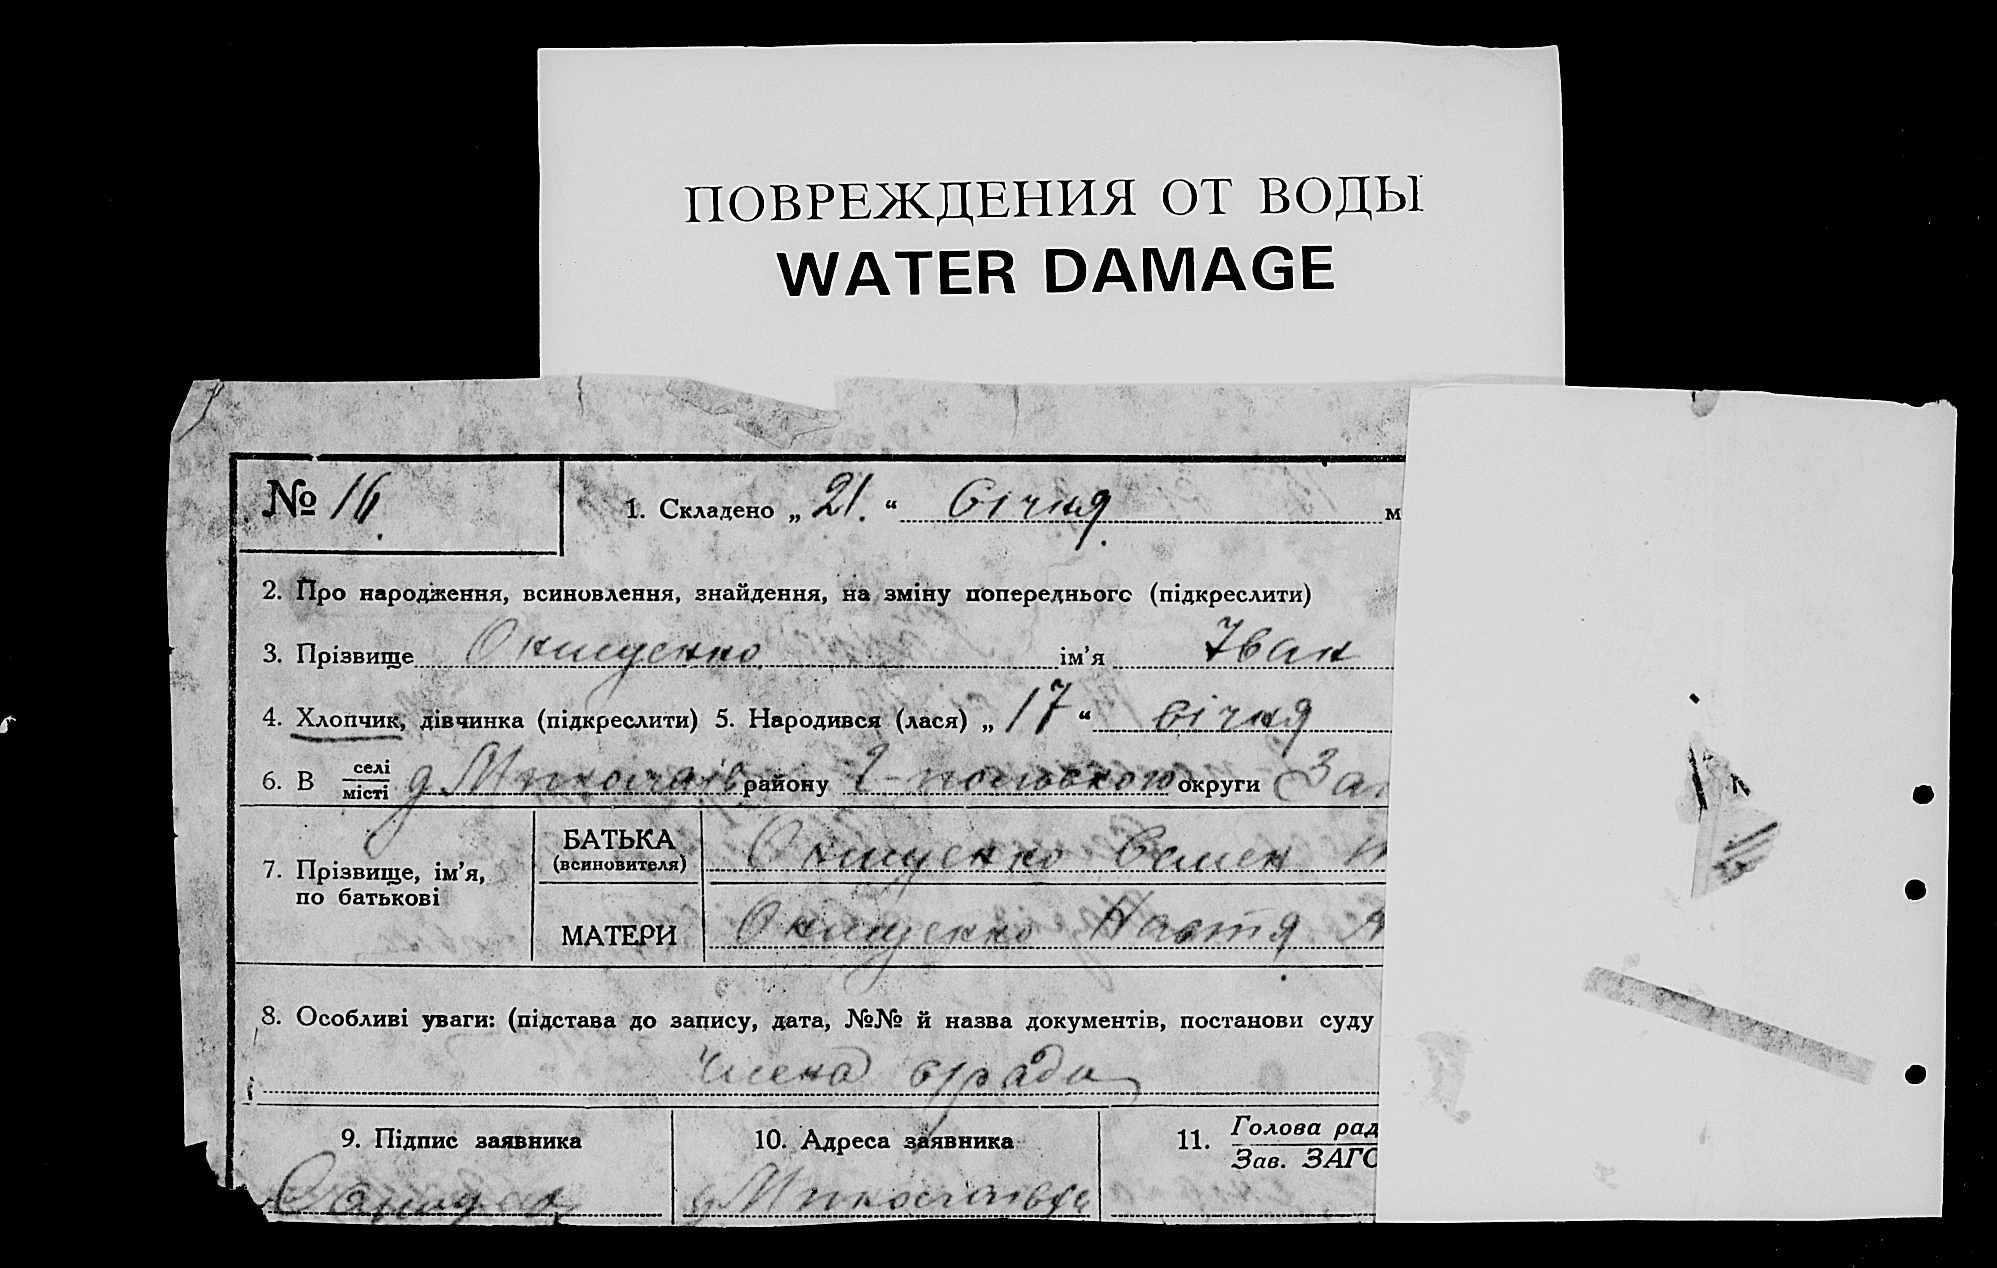 ПОВРЕЖДЕНИЯ ОТ ВОДЫ
WATER DAMAGE
№ 16
1. Складено „ 21. “ Січня м
2. Про народження, всиновлення, знайдення, на зміну попереднього (підкреслити)
3. Прізвище Онищенко ім’я Іван
4. Хлопчик, дівчинка (підкреслити) 5. Народився (лася) „ 17 “ січня
6. В селі
місті д Миколаїв району округи Зап
7. Прізвище, ім’я,
по батькові
БАТЬКА
(всиновителя)
Онищенко Семен
МАТЕРИ
Онищенко Настя
8. Особливі уваги: (підстава до запису, дата, №№ й назва документів, постанови суду
члена с/ради
9. Підпис заявника
10. Адреса заявника
д Миколаївка
11. Голова рад
Зав. ЗАГС